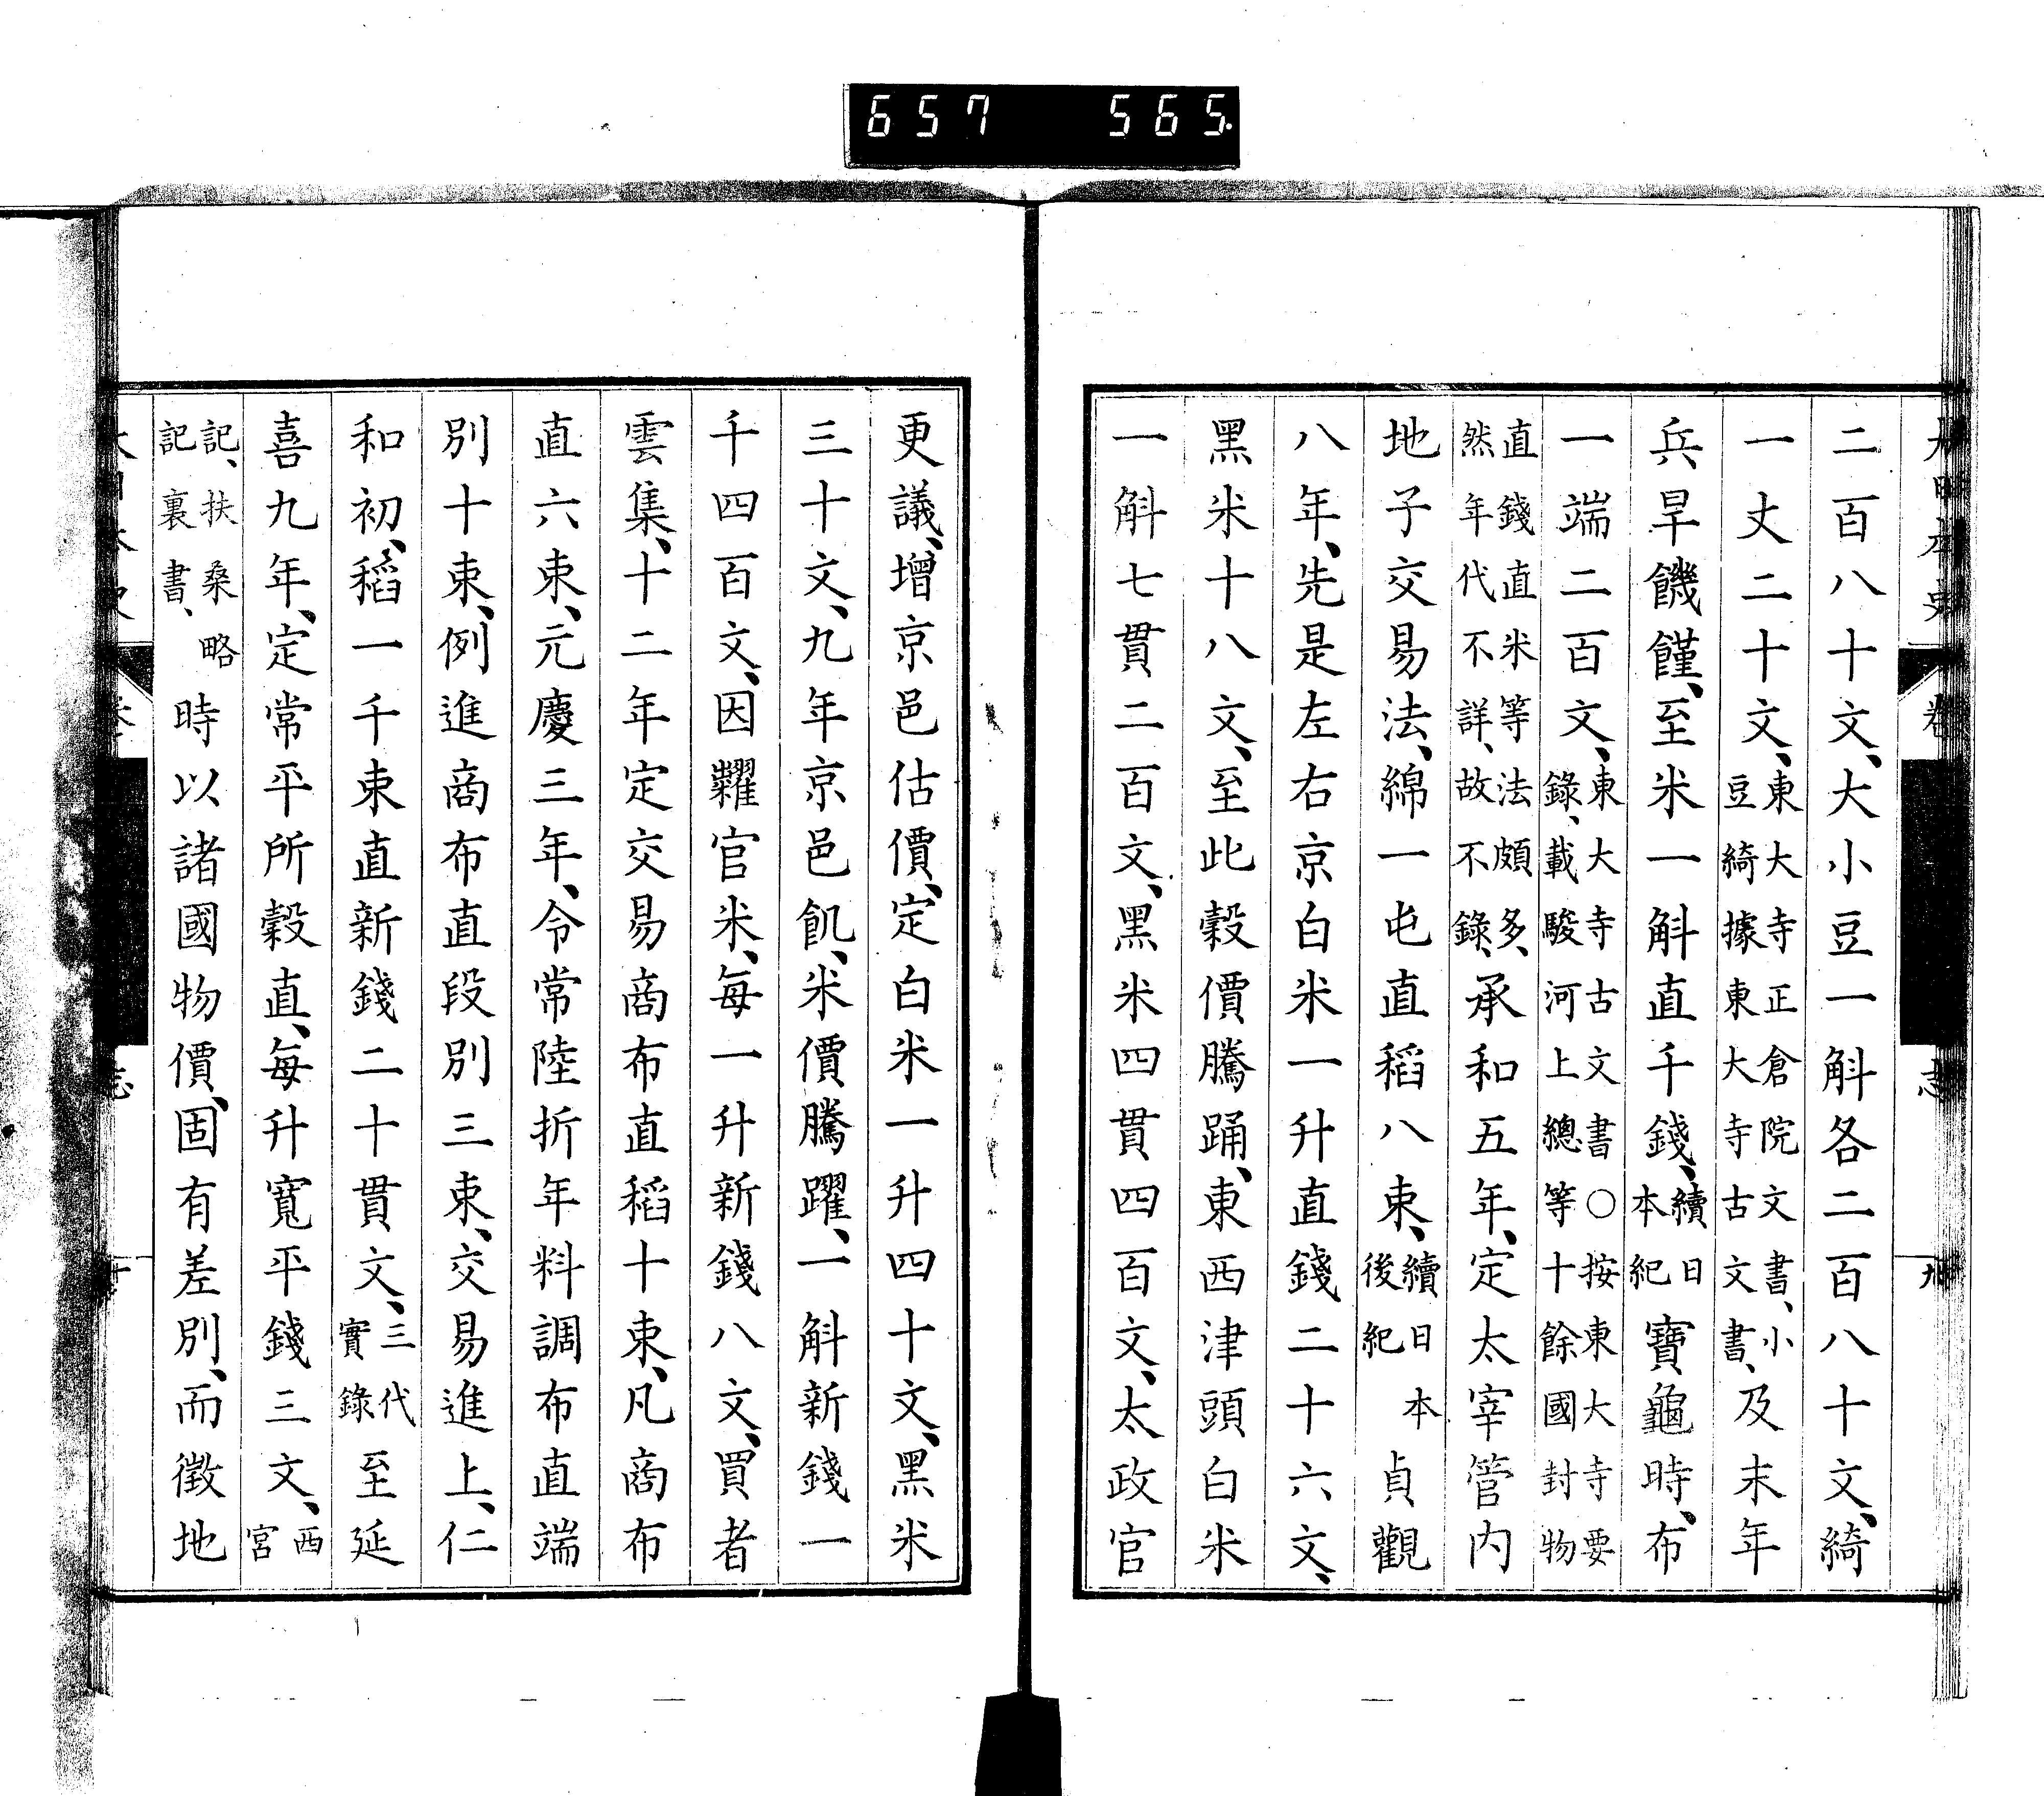 657 565
二百八十文、大小豆一斛各二百八十文、綺
一丈二十文、東大寺正倉院文書、小豆綺據東大寺古文書、及末年
兵旱饑饉、至米一斛直千錢、續日本紀寶龜時、布
一端二百文、東大寺古文書○按東大寺要錄、載駿河上總等十餘國封物
直錢直米等法頗多、然年代不詳、故不錄、承和五年、定太宰管内
地子交易法、綿一屯直稻八束、續日本後紀貞觀
八年、先是左右京白米一升直錢二十六文、
黑米十八文、至此穀價騰踊、東西津頭白米
一斛七貫二百文、黑米四貫四百文、太政官
更議、增京邑估價、定白米一升四十文、黑米
三十文、九年京邑飢、米價騰躍、一斛新錢一
千四百文、因糶官米、每一升新錢八文、買者
雲集、十二年定交易商布直稻十束、凡商布
直六束、元慶三年、令常陸折年料調布直端
別十束、例進商布直段別三束、交易進上、仁
和初、稻一千束直新錢二十貫文、三代實錄至延
喜九年、定常平所穀直、每升寬平錢三文、西宮
記、扶桑略記裏書、時以諸國物價、固有差別、而徵地